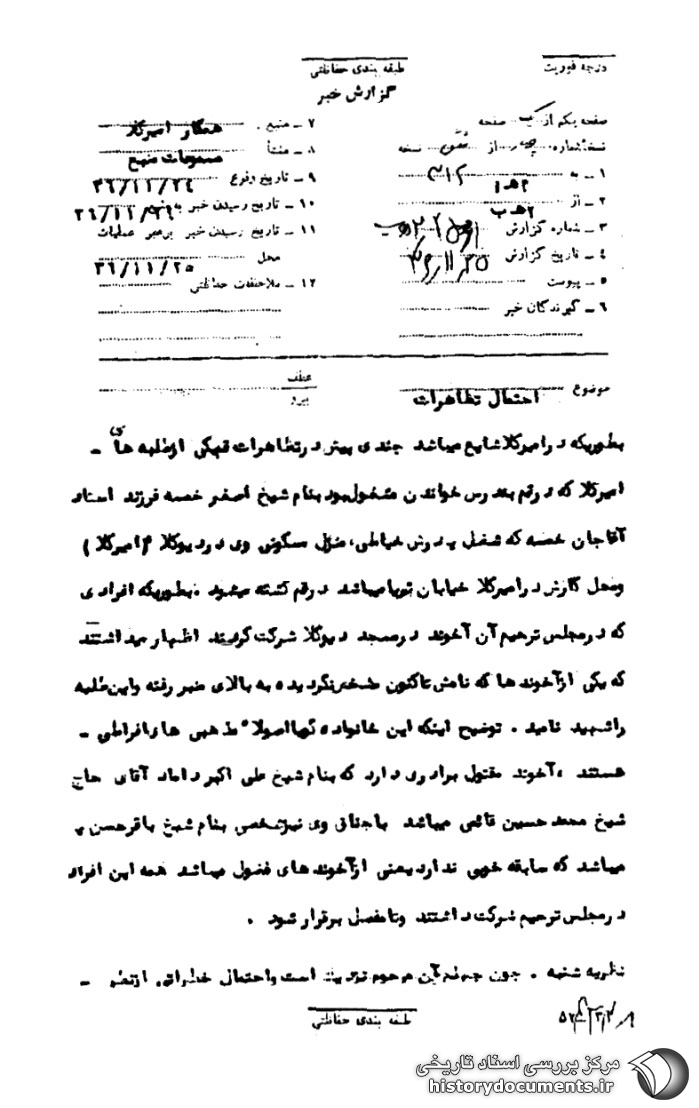 درجه فوریت
طبقه بندی حفاظتی
گزارش خبر
صفحه یکم از یک صفحه
نسخه شماره از نسخه
۱ ـ به ۳۱۲
۲ ـ از
۳ ـ شماره گزارش
۴ ـ تاریخ گزارش
۵ ـ پیوست
۶ ـ گیرندگان خبر
۷ ـ منبع همکار امیرکلا
۸ ـ منشأ مسموعات منبع
۹ ـ تاریخ وقوع ۳۶/۱۱/۲۴
۱۰ ـ تاریخ رسیدن خبر به منبع
۱۱ ـ تاریخ رسیدن خبر برهبر عملیات
محل ۳۶/۱۱/۲۵
۱۲ ـ ملاحظات حفاظتی
موضوع احتمال تظاهرات
عطف
پیرو
بطوریکه در امیرکلا شایع میباشد چندی پیش در تظاهرات قم یکی از طلبه های ـ
امیرکلا که در قم بدرس خواندن مشغول بود بنام شیخ اصغر خمسه فرزند استاد
آقاجان خمسه که شغل پدرش خیاطی، منزل مسکونی وی در دیوکلا (امیرکلا)
ومحل کارش در امیرکلا خیابان ثریا میباشد در قم کشته میشود . بطوریکه افرادی
که در مجلس ترحیم آن آخوند در مسجد دیوکلا شرکت کردند اظهار میداشتند
که یکی از آخوند ها که نامش تاکنون مشخص نگردیده به بالای منبر رفته و این طلبه
را شهید نامید . توضیح اینکه این خانواده کلا اصولا" مذهبی ها و افراطی ـ
هستند ، آخوند مقتول برادری دارد که بنام شیخ علی اکبر داماد آقای حاج
شیخ محمد حسین قائمی میباشد باجناق وی نیز شخصی بنام شیخ باقر حسن پ
میباشد که سابقه خوبی ندارد یعنی از آخوند های فضول میباشد همه این افراد
در مجلس ترحیم شرکت داشتند
نظریه شنبه . چون چهلم آن مرحوم نزدیک است و احتمال خطراتی از نظر ـ
طبقه بندی حفاظتی
مرکز بررسی اسناد تاریخی
historydocuments.ir